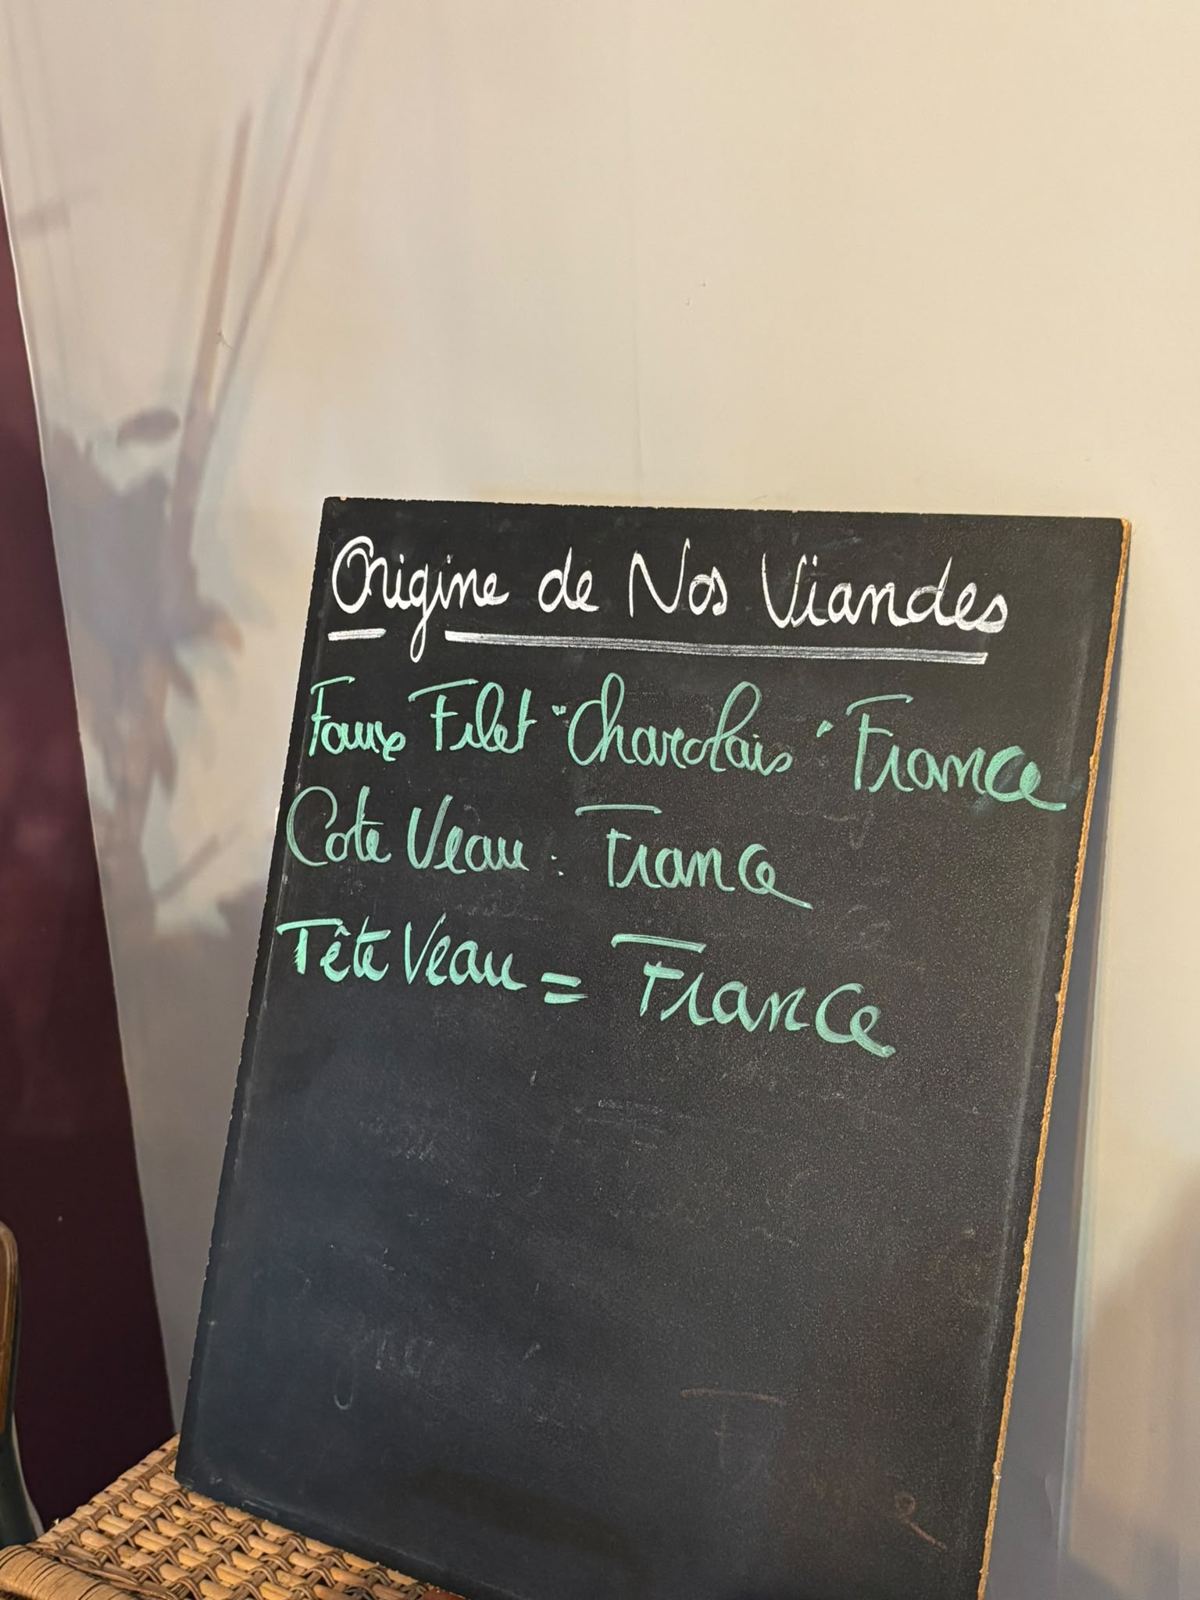 Origine de Nos Viandes
Faux Filet "Charolais" France
Cote Veau : France
Tête Veau = France